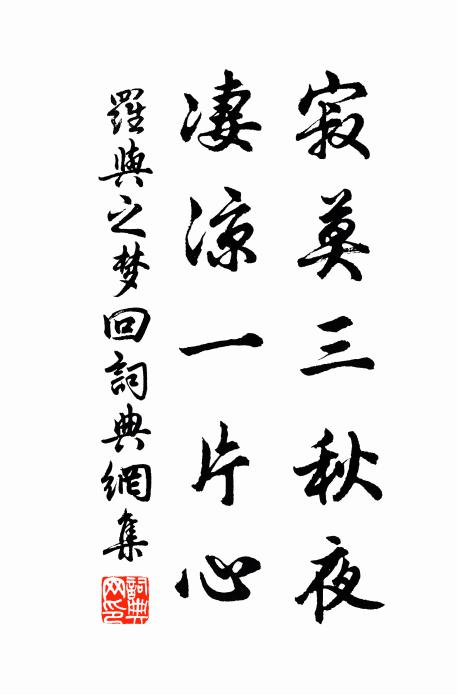 寂莫三秋夜
凄涼一片心
羅與之梦回詞典網集
詞典網印